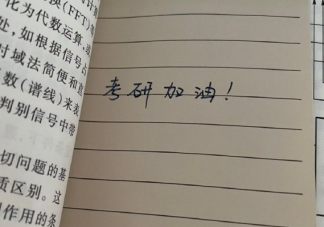 (FFT)
化为代数运算
处,如根据信号占
时域法简便和
数(谱线)来表
判别信号中带
切问题的基
质区别。这
作用的条
考研加油!